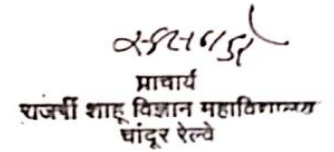 प्राचार्य
राजर्षी शाहू विज्ञान महाविद्यालय
चांदूर रेल्वे